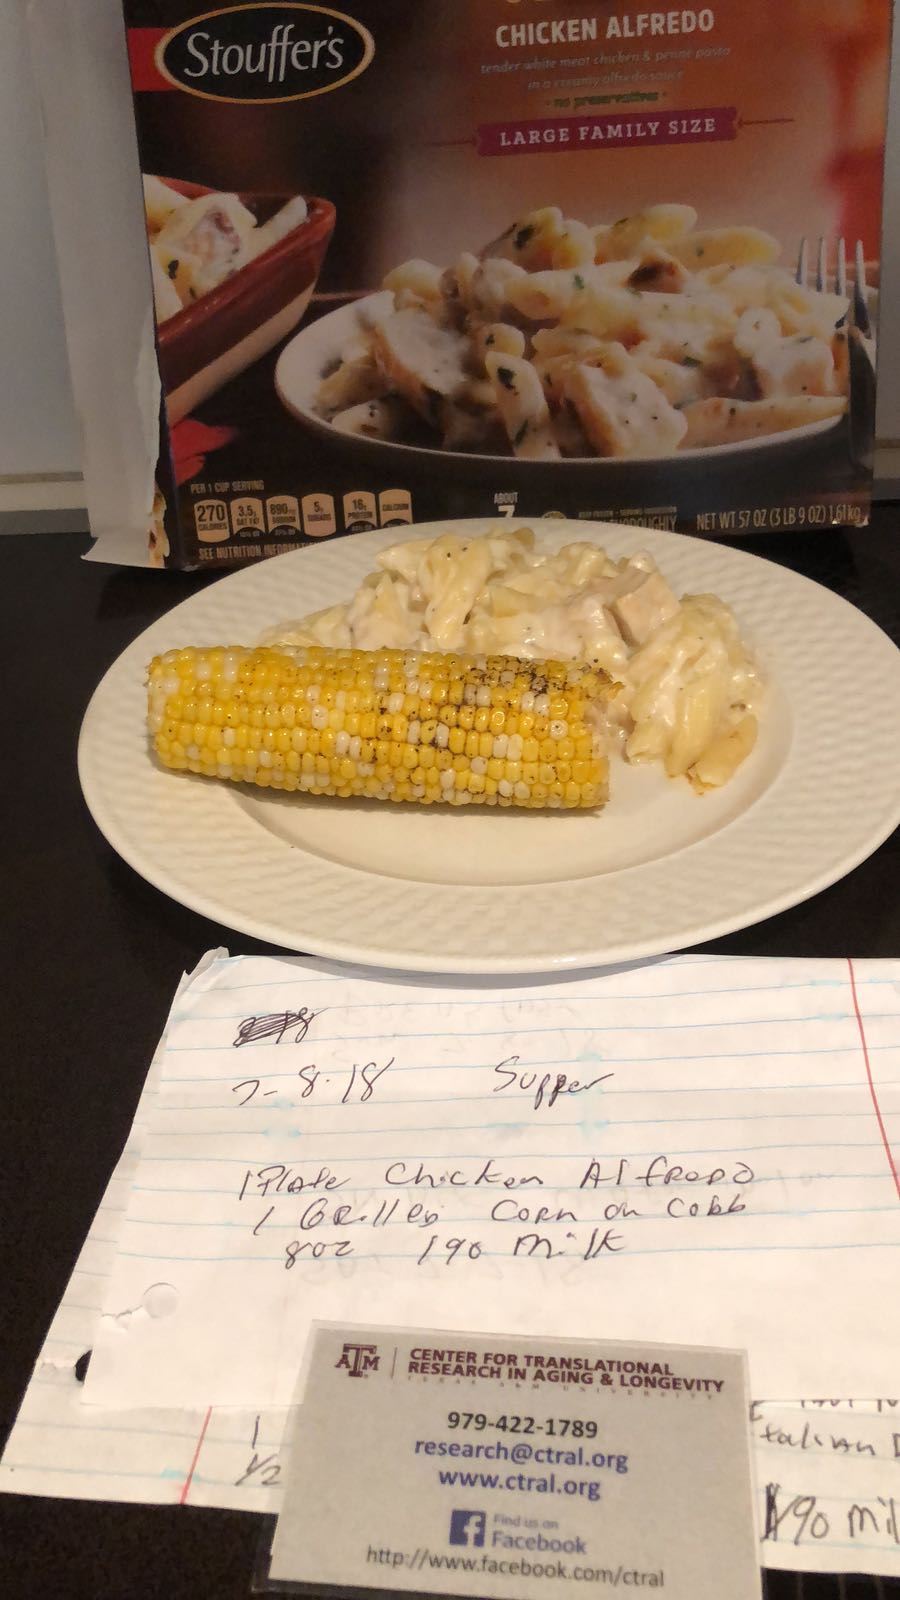 Stouffer's
CHICKEN ALFREDO
tender white meat chicken & penne pasta
in a creamy alfredo sauce
- no preservatives -
LARGE FAMILY SIZE
PER 1 CUP SERVING
270 CALORIES
3.5g SAT FAT
890mg SODIUM
5g SUGARS
16g PROTEIN
CALCIUM
ABOUT
7
THOROUGHLY
NET WT 57 OZ (3 LB 9 OZ) 1.61kg
SEE NUTRITION INFORMATI
7-8-18 Supper
1 Plate Chicken Alfredo
1 Grilled Corn on Cobb
8oz 190 Milk
ATM CENTER FOR TRANSLATIONAL
RESEARCH IN AGING & LONGEVITY
TEXAS A&M UNIVERSITY
979-422-1789
research@ctral.org
www.ctral.org
Find us on
Facebook
http://www.facebook.com/ctral
1
1/2
talian D
190 mil